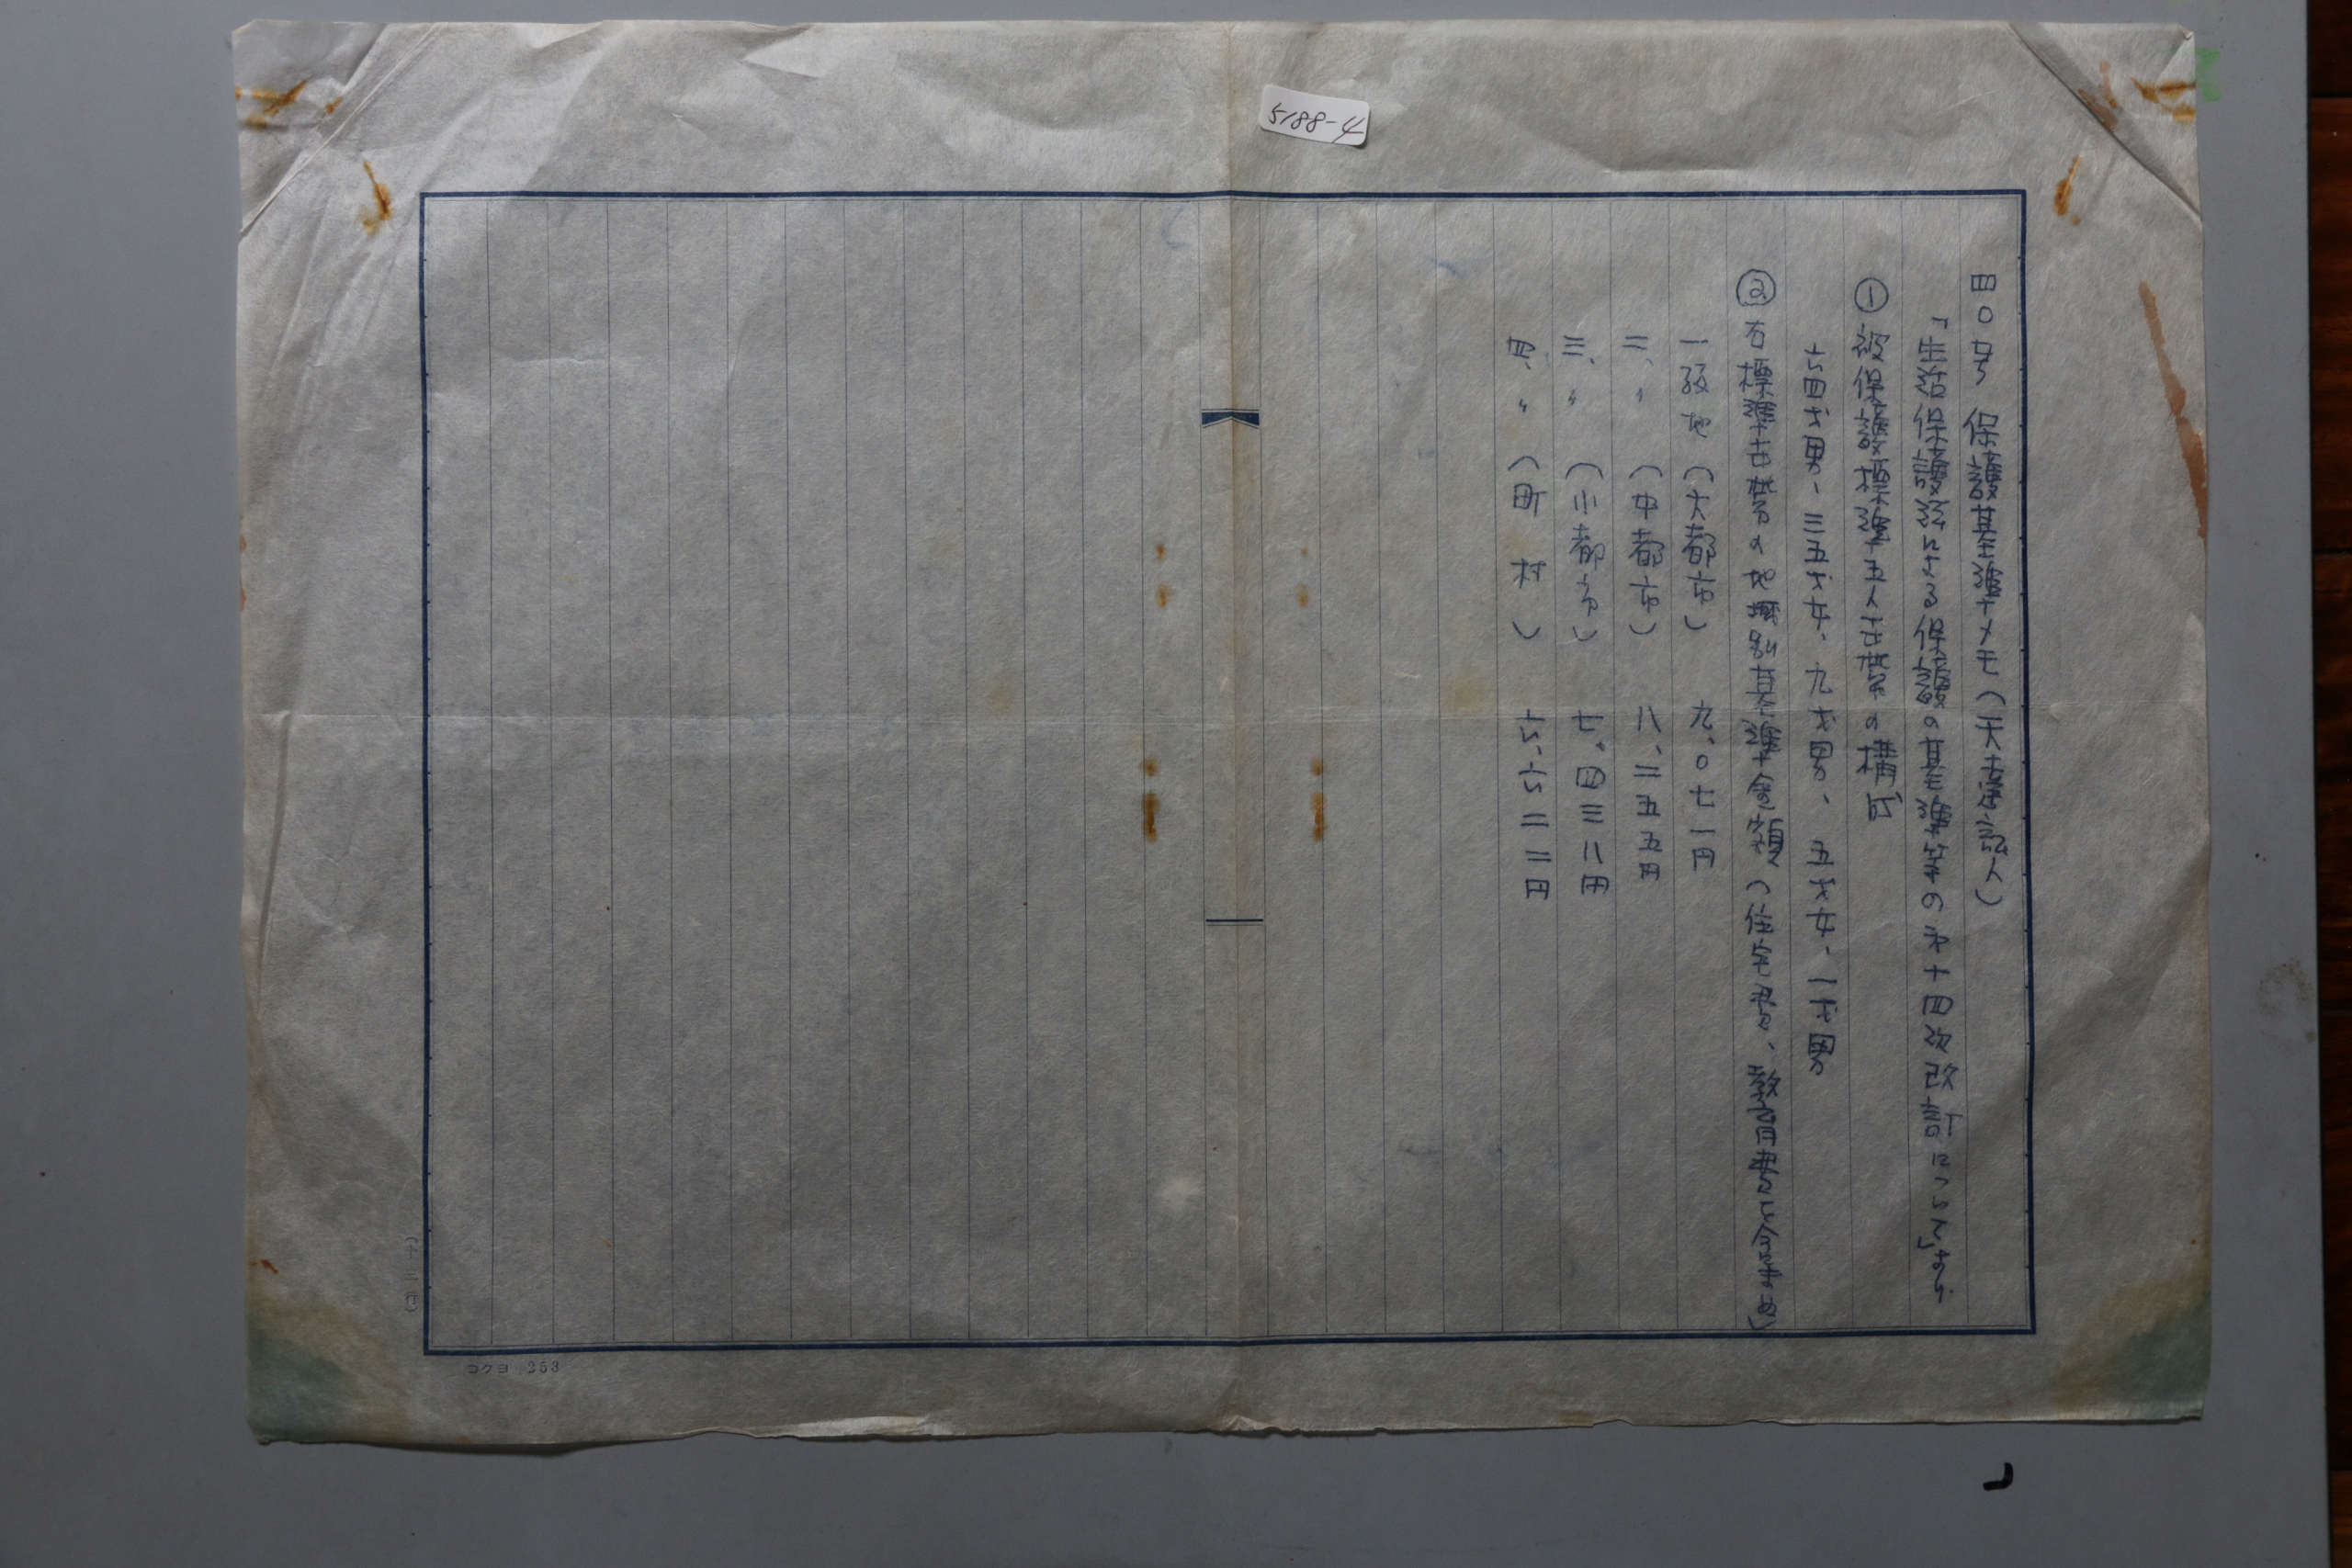 5188-4
四〇号 保護基準メモ(天達証人)
「生活保護法による保護の基準等の第十四次改訂について」より
① 被保護標準五人世帯の構成
六四才男、三五才女、九才男、五才女、一才男
② 右標準世帯の地域別基準金額(住宅費、教育費を含まぬ)
一級地(大都市) 九、〇七一円
二、〃(中都市) 八、二五五円
三、〃(小都市) 七、四三八円
四、〃(町村) 六、六二二円
コクヨ 253